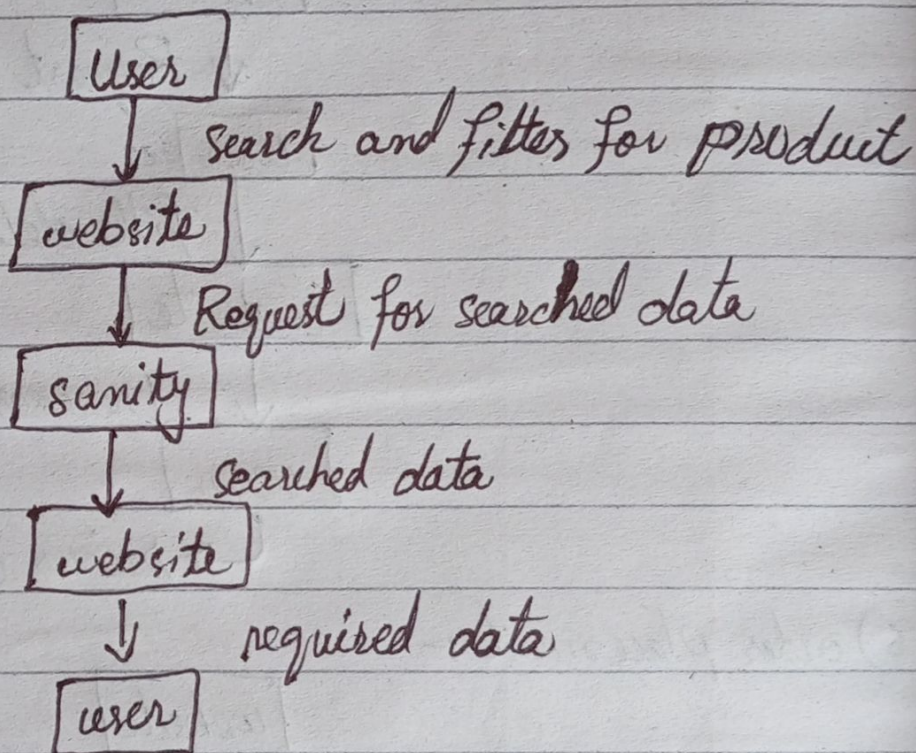 User
search and filter for product
website
Request for searched data
sanity
searched data
website
required data
user